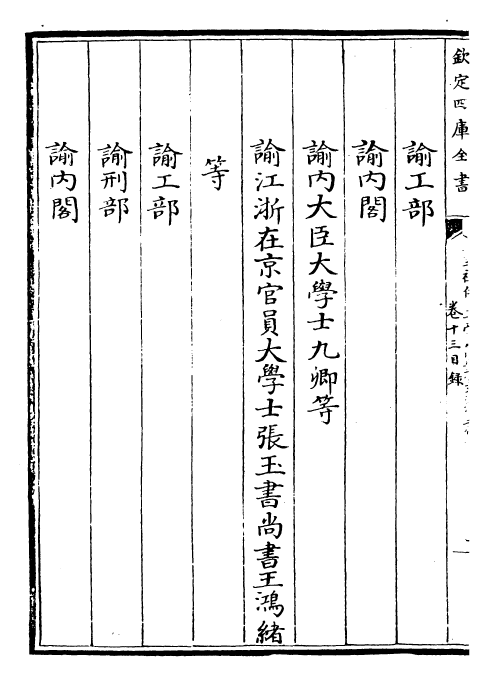 欽定四庫全書
卷十三目録
諭工部
諭内閣
諭内大臣大學士九卿等
諭江浙在京官員大學士張玉書尚書王鴻緒
等
諭工部
諭刑部
諭内閣